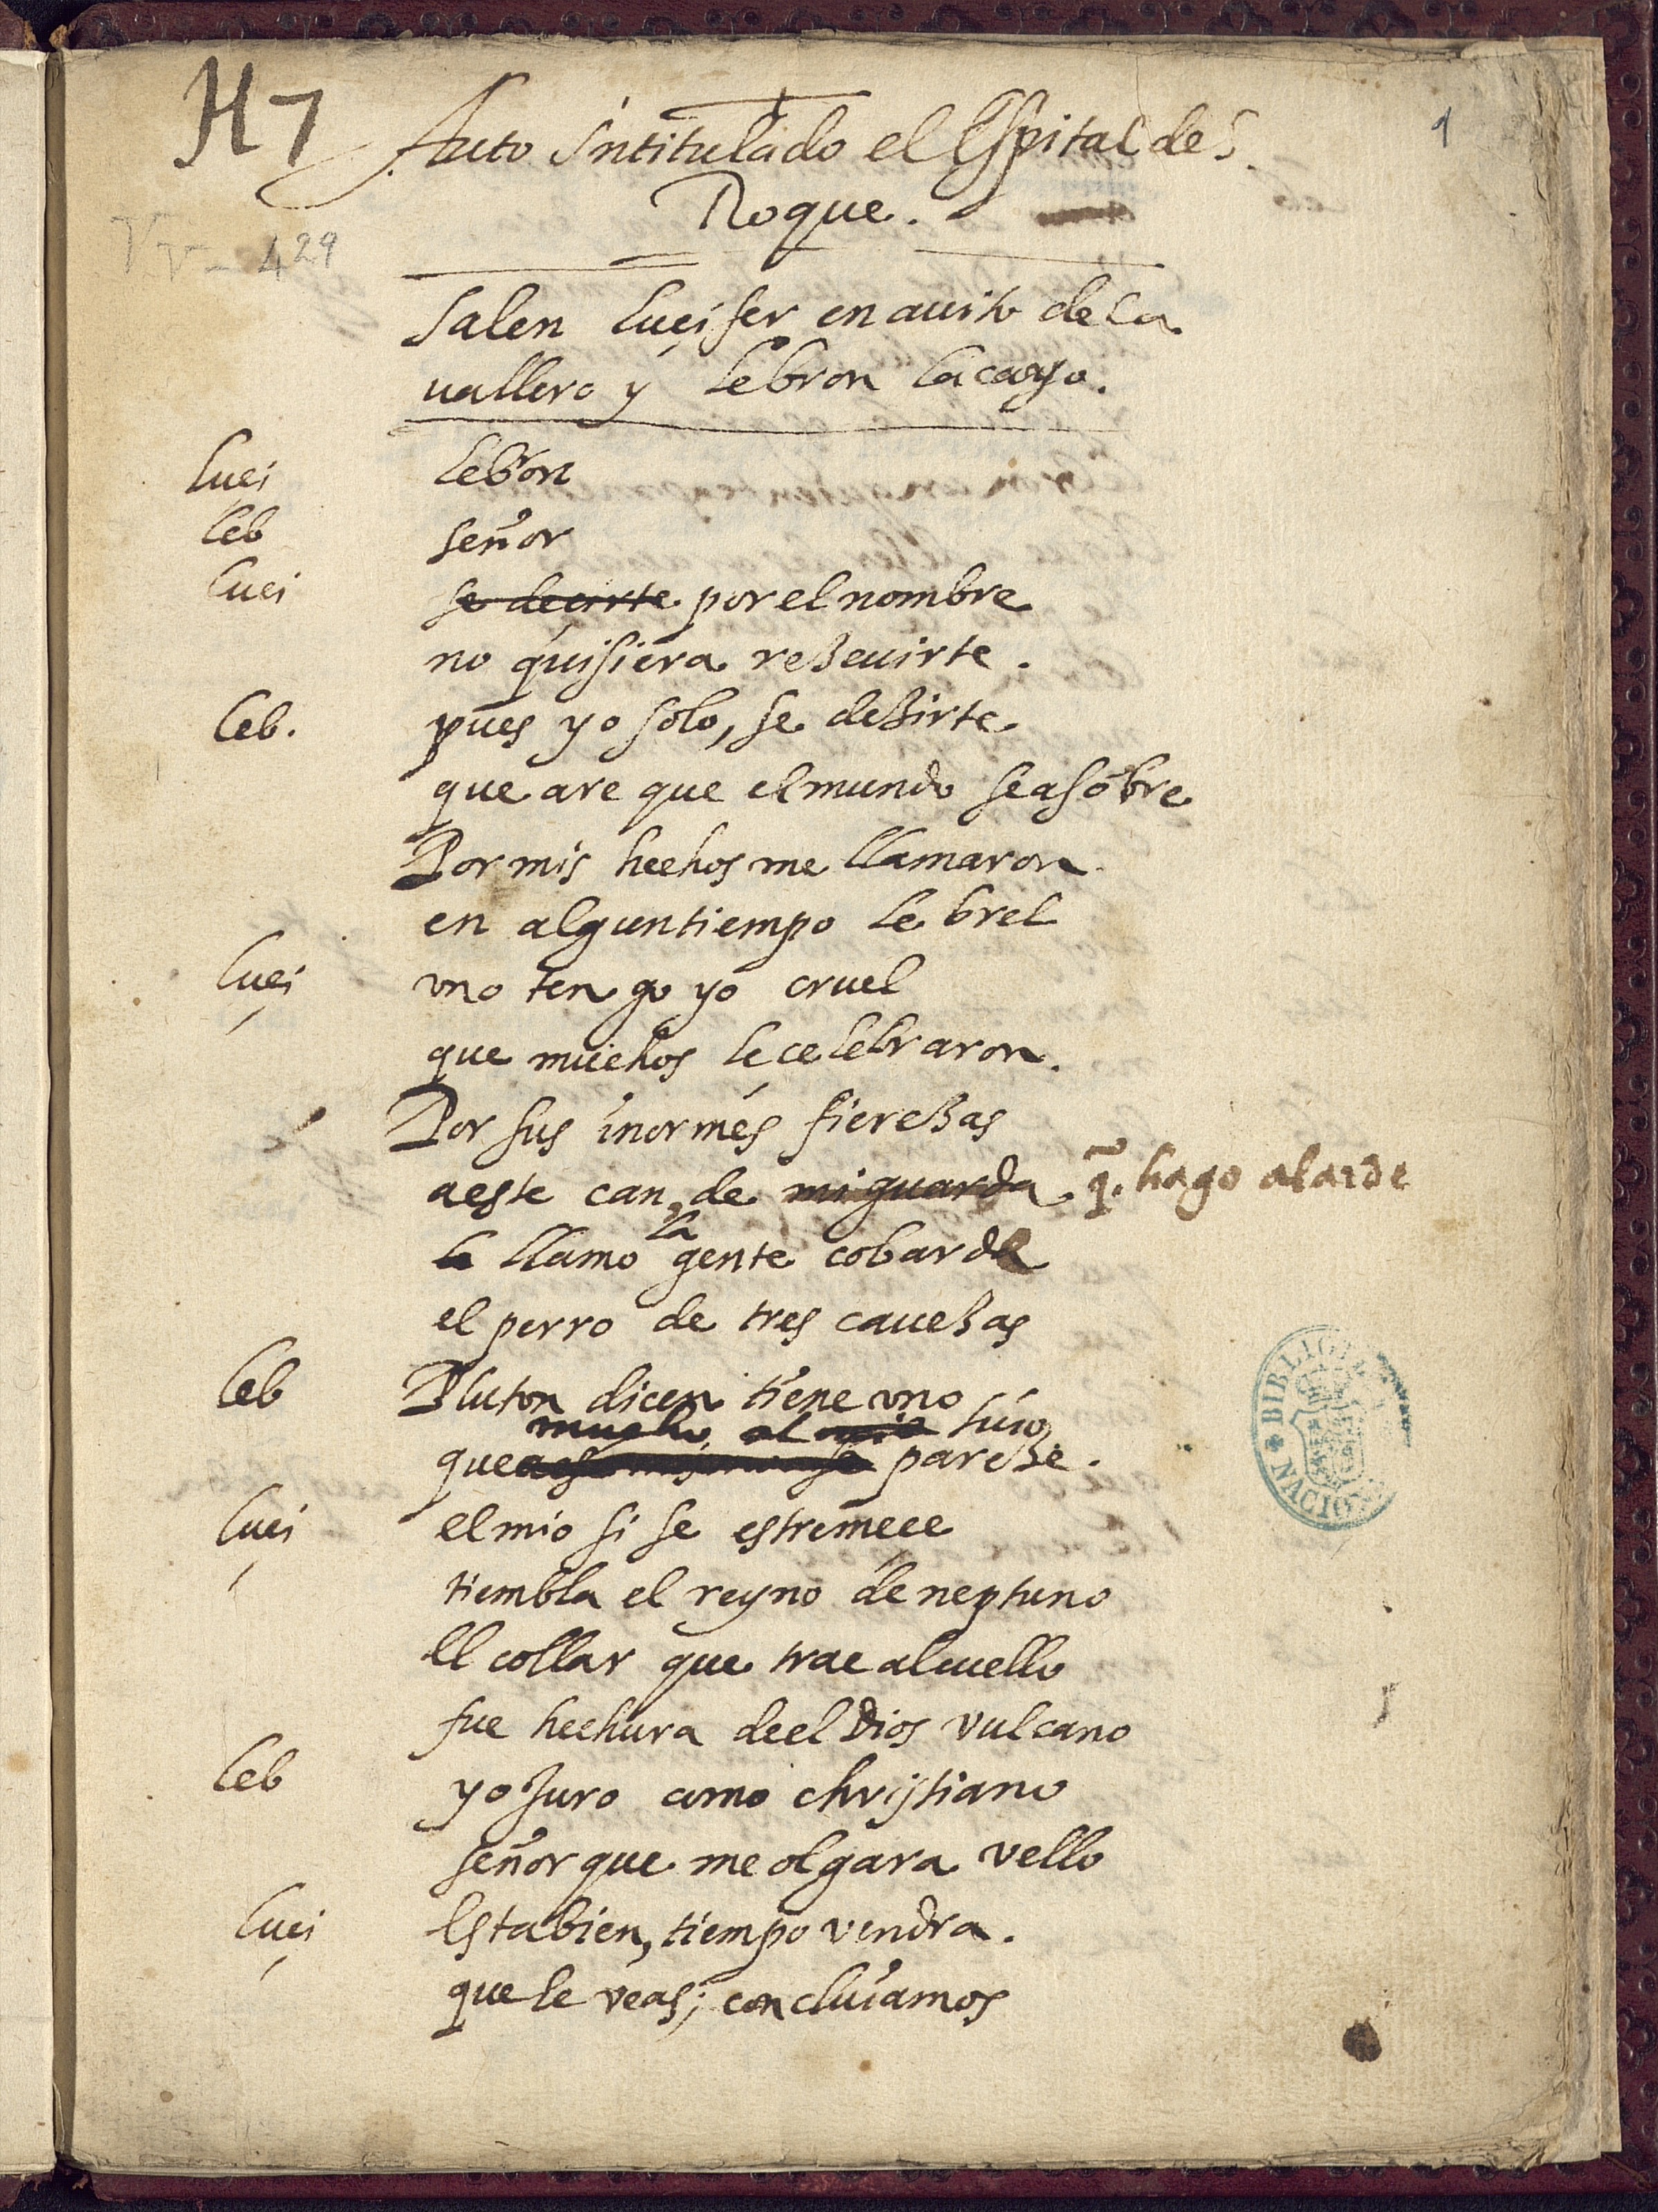 H 7
1
Auto Intitulado el Espital de S.
Roque.
Vv - 429
Salen luçifer en auito de Ca
uallero y lebron lacayo.
luçi lebron
leb señor
luçi se deçirte por el nombre
no quisiera reseuirte.
leb. pues yo solo, se desirte
que are que el mundo se asõbre
Por mis hechos me llamaron
en algun tiempo lebrel
luçi vno tengo yo cruel
que muchos le celebraron.
Por sus inormes fieresas
a este can, de mi guarda q̃. hago alarde
la
llamo gente cobarde
el perro de tres cauesas
leb Pluton dicen tiene vno
mucho, al mio tuio
que parese.
luçi el mio si se estremece
tiembla el reyno de neptuno
El collar que trae al cuello
fue hechura de el Dios vulcano
leb yo Juro como christiano
señor que me olgara vello
luçi Esta bien, tiempo vendra.
que le veas; concluiamos
BIBLIOTECA NACIONAL